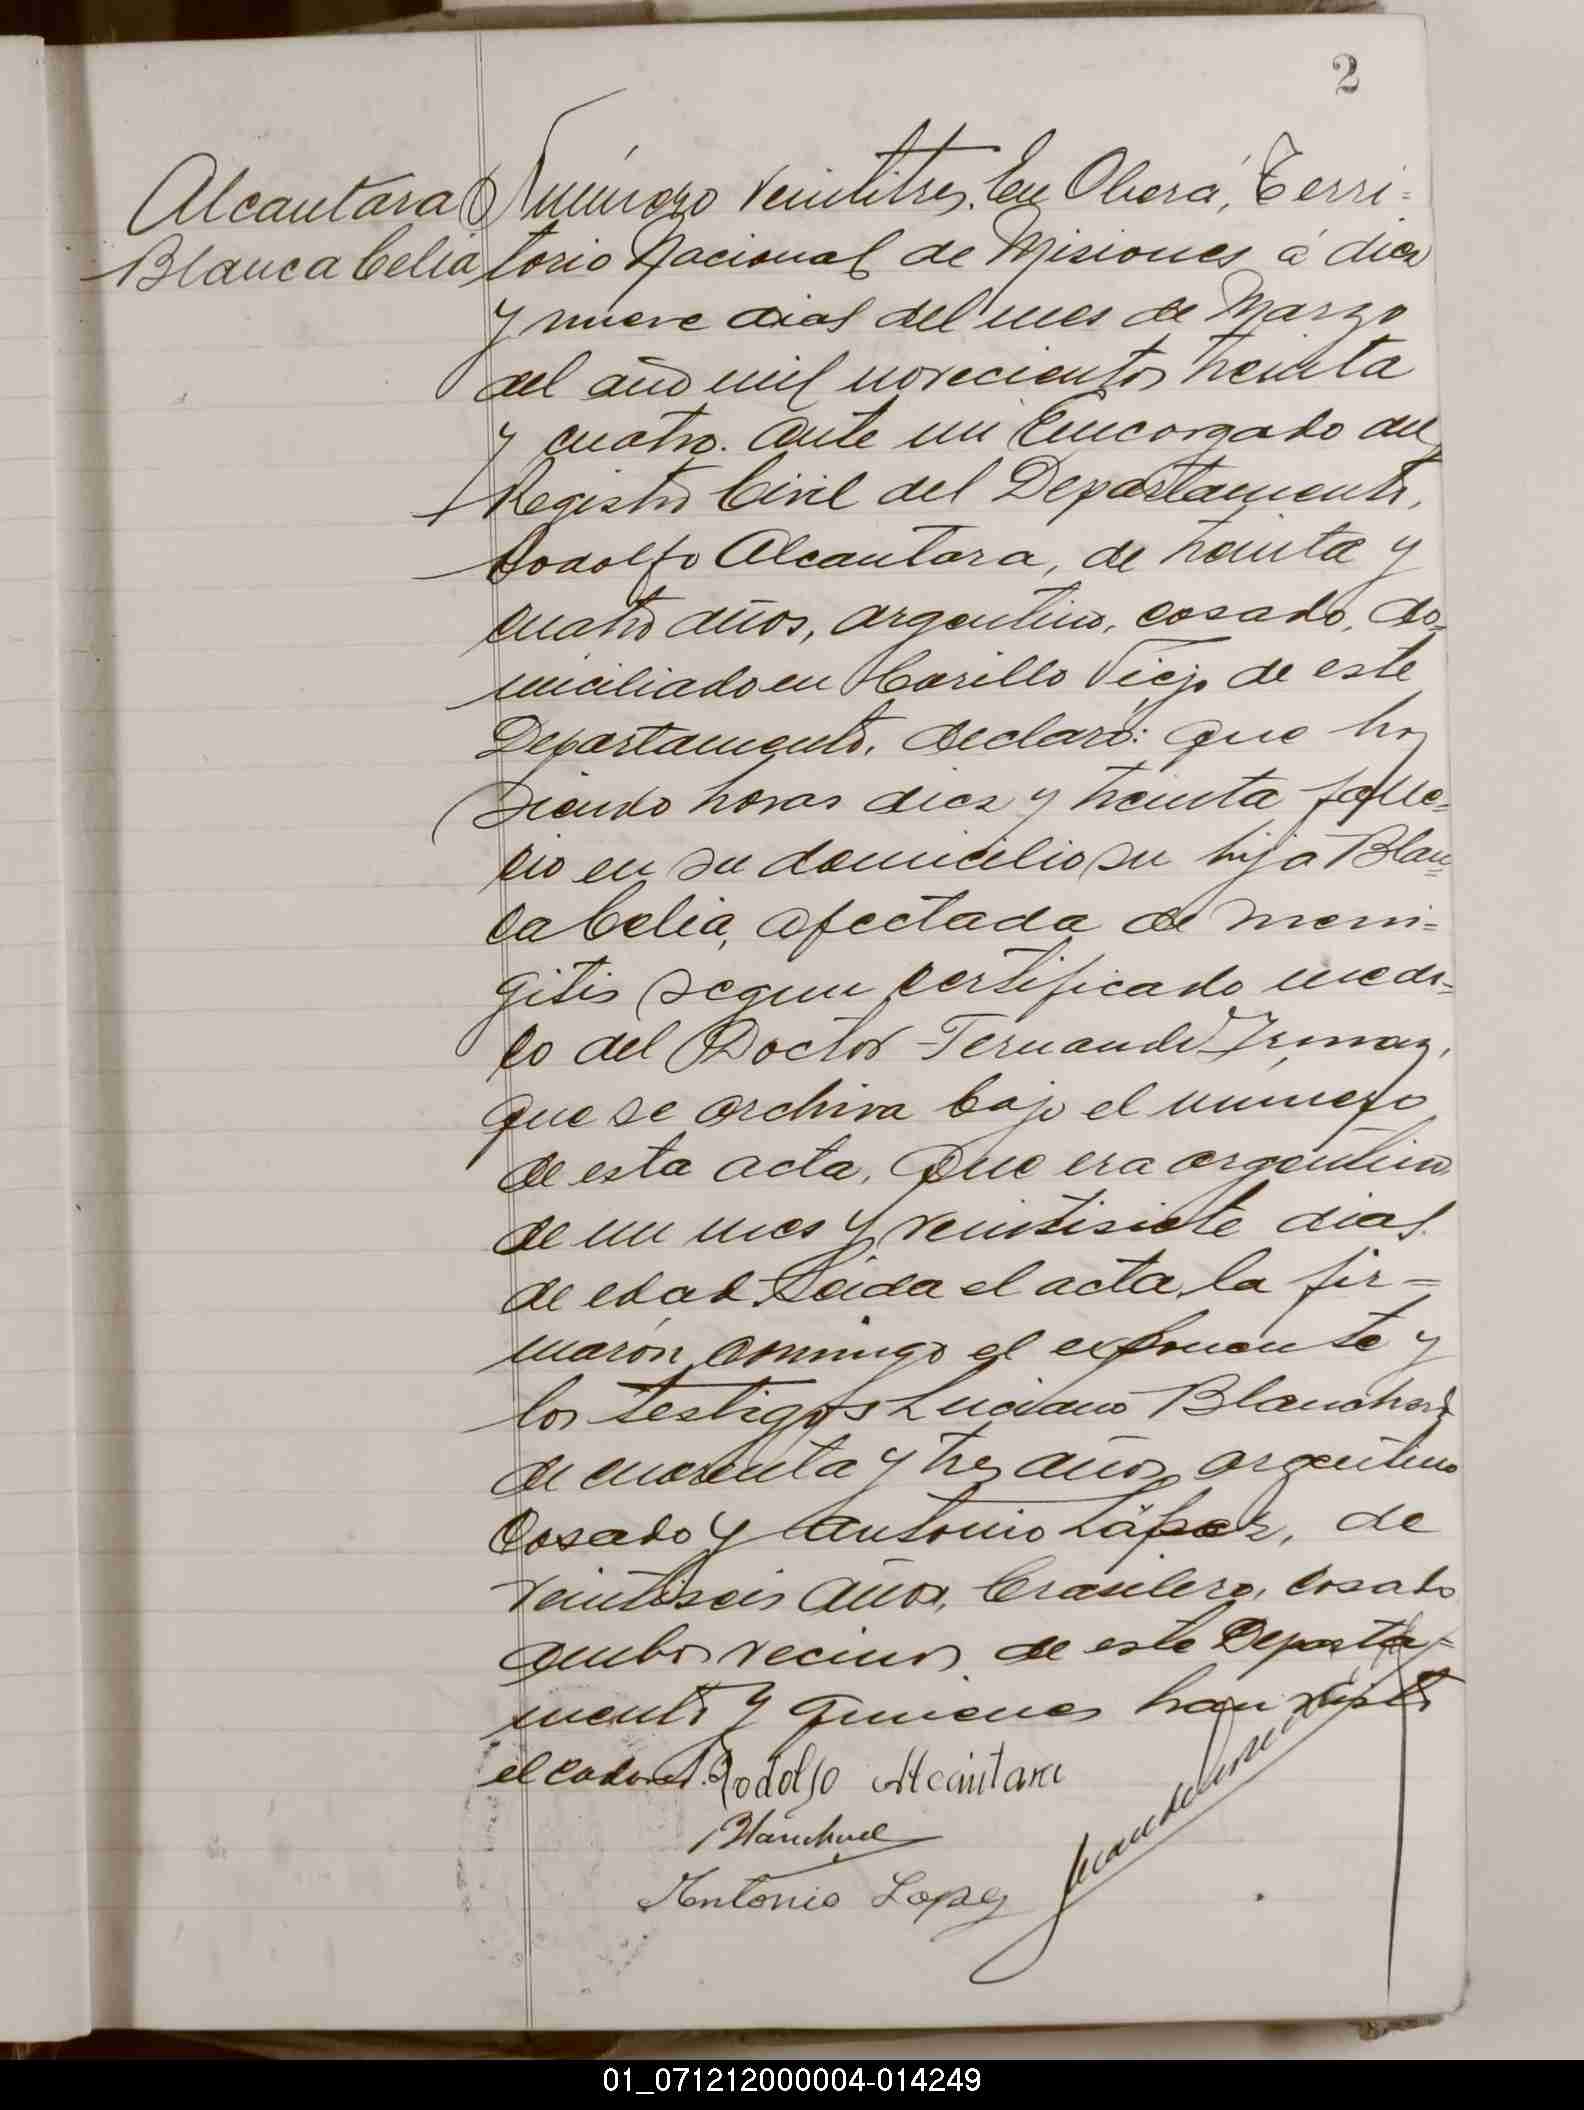 2
Alcantara
Blanca Celia
Número veintitres. En Oberá, Terri=
torio Nacional de Misiones á diez
y nueve dias del mes de Marzo
del año mil novecientos treinta
y cuatro. ante mi Encargado del
Registro Civil del Departamento,
Rodolfo Alcantara, de treinta y
cuatro años, argentino, casado, do=
miciliado en Cerillo Viejo de este
Departamento, declaró: que hoy
siendo horas diez y treinta falle=
cio en su domicilio su hija Blan=
ca Celia, afectada de meni=
gitis segun certificado medi=
co del Doctor Fernando
que se archiva bajo el número
de esta acta, Que era argentina
de un mes y veintisiete dias
de edad. Leida el acta, la fir=
marón conmigo el exponente y
los testigos Luciano Blanchard
de cuarenta y tres años, argentino
casado y Antonio López, de
veintiseis años, brasilero, casado
ambos vecinos de este Departa=
mento y quienes han visto
el cadaver. Rodolfo Alcántara
Blanchard
Antonio Lopez
01_071212000004-014249